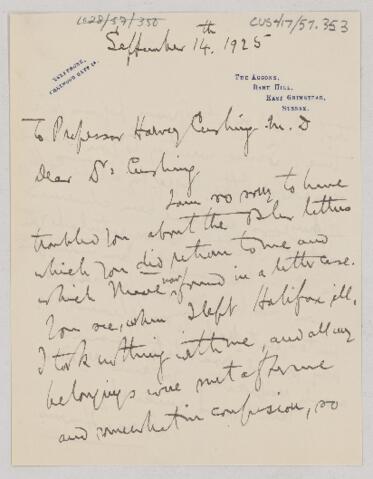 CUS417/57.353
September 14.th 1925
TELEPHONE,
The Acorns,
Dart Hill,
East Grinstead,
Sussex.
To Professor Harvey Cushing M.D
Dear Dr: Cushing
I am so sorry to have
troubled you about the Osler letters
which you did return to me and
which I have now found in a letter case.
You see, when I left Halifax ill,
I took nothing with me, and all my
belongings were sent after me
and somewhat in confusion, so